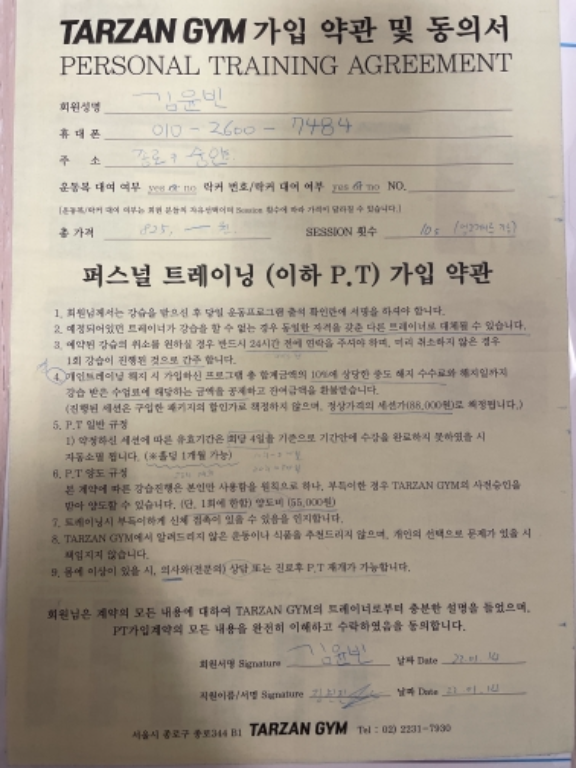 TARZAN GYM 가입 약관 및 동의서
PERSONAL TRAINING AGREEMENT
회원성명 김윤빈
휴 대 폰 010 - 2600 - 7484
주 소 종로구 숭인
운동복 대여 여부 yes or no 락커 번호/락커 대여 여부 yes or no NO.
(운동복/락커 대여 여부는 회원 분들의 자유선택이며 Session 횟수에 따라 가격이 달라질 수 있습니다.)
총 가격 825, 원 SESSION 횟수 10s
퍼스널 트레이닝 (이하 P.T) 가입 약관
1. 회원님께서는 강습을 받으신 후 당일 운동프로그램 출석 확인란에 서명을 하셔야 합니다.
2. 예정되어있던 트레이너가 강습을 할 수 없는 경우 동일한 자격을 갖춘 다른 트레이너로 대체될 수 있습니다.
3. 예약된 강습의 취소를 원하실 경우 반드시 24시간 전에 연락을 주셔야 하며, 미리 취소하지 않은 경우
1회 강습이 진행된 것으로 간주 합니다.
4. 개인트레이닝 해지 시 가입하신 프로그램 총 합계금액의 10%에 상당한 중도 해지 수수료와 해지일까지
강습 받은 수업료에 해당하는 금액을 공제하고 잔여금액을 환불받습니다.
(진행된 세션은 구입한 패키지의 할인가로 책정하지 않으며, 정상가격의 세션가(88,000원)로 책정됩니다.)
5. P.T 일반 규정
1) 약정하신 세션에 따른 유효기간은 회당 4일을 기준으로 기간안에 수강을 완료하지 못하였을 시
자동소멸 됩니다. (※홀딩 1개월 가능)
6. P.T 양도 규정
본 계약에 따른 강습진행은 본인만 사용함을 원칙으로 하나, 부득이한 경우 TARZAN GYM의 사전승인을
받아 양도할 수 있습니다. (단, 1회에 한함) 양도비 (55,000원)
7. 트레이닝시 부득이하게 신체 접촉이 있을 수 있음을 인지합니다.
8. TARZAN GYM에서 알려드리지 않은 운동이나 식품을 추천드리지 않으며, 개인의 선택으로 문제가 있을 시
책임지지 않습니다.
9. 몸에 이상이 있을 시, 의사와(전문의) 상담 또는 진료후 P.T 재개가 가능합니다.
회원님은 계약의 모든 내용에 대하여 TARZAN GYM의 트레이너로부터 충분한 설명을 들었으며,
PT가입계약의 모든 내용을 완전히 이해하고 수락하였음을 동의합니다.
회원서명 Signature 김윤빈 날짜 Date 22.01.14
직원이름/서명 Signature 날짜 Date 22.01.14
서울시 종로구 종로344 B1 TARZAN GYM Tel : 02) 2231-7930